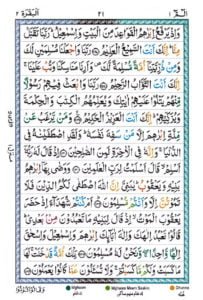 الٓمّٓ ١ ٢١ الْبَقَرَة ٢
وَاِذْ يَرْفَعُ اِبْرٰهٖمُ الْقَوَاعِدَ مِنَ الْبَيْتِ وَاِسْمٰعِيْلُ ؕ رَبَّنَا تَقَبَّلْ
مِنَّا ؕ اِنَّكَ اَنْتَ السَّمِيْعُ الْعَلِيْمُ ۝ رَبَّنَا وَاجْعَلْنَا مُسْلِمَيْنِ لَكَ
وَمِنْ ذُرِّيَّتِنَاۤ اُمَّةً مُّسْلِمَةً لَّكَ ۪ وَاَرِنَا مَنَاسِكَنَا وَتُبْ عَلَيْنَا ۚ
اِنَّكَ اَنْتَ التَّوَّابُ الرَّحِيْمُ ۝ رَبَّنَا وَابْعَثْ فِيْهِمْ رَسُوْلًا
مِّنْهُمْ يَتْلُوْا عَلَيْهِمْ اٰيٰتِكَ وَيُعَلِّمُهُمُ الْكِتٰبَ وَالْحِكْمَةَ
وَيُزَكِّيْهِمْ ؕ اِنَّكَ اَنْتَ الْعَزِيْزُ الْحَكِيْمُ ۝ وَمَنْ يَّرْغَبُ عَنْ
مِّلَّةِ اِبْرٰهٖمَ اِلَّا مَنْ سَفِهَ نَفْسَهٗ ؕ وَلَقَدِ اصْطَفَيْنٰهُ فِى
الدُّنْيَا ۚ وَاِنَّهٗ فِى الْاٰخِرَةِ لَمِنَ الصّٰلِحِيْنَ ۝ اِذْ قَالَ لَهٗ رَبُّهٗۤ
اَسْلِمْ ۙ قَالَ اَسْلَمْتُ لِرَبِّ الْعٰلَمِيْنَ ۝ وَوَصّٰى بِهَاۤ اِبْرٰهٖمُ
بَنِيْهِ وَيَعْقُوْبُ ؕ يٰبَنِىَّ اِنَّ اللّٰهَ اصْطَفٰى لَكُمُ الدِّيْنَ فَلَا
تَمُوْتُنَّ اِلَّا وَاَنْتُمْ مُّسْلِمُوْنَ ۝ اَمْ كُنْتُمْ شُهَدَآءَ اِذْ حَضَرَ
يَعْقُوْبَ الْمَوْتُ ۙ اِذْ قَالَ لِبَنِيْهِ مَا تَعْبُدُوْنَ مِنْۢ بَعْدِىْ ؕ
قَالُوْا نَعْبُدُ اِلٰهَكَ وَاِلٰهَ اٰبَآئِكَ اِبْرٰهٖمَ وَاِسْمٰعِيْلَ وَاِسْحٰقَ
اِلٰهًا وَّاحِدًا ۖۚ وَّنَحْنُ لَهٗ مُسْلِمُوْنَ ۝ تِلْكَ اُمَّةٌ قَدْ خَلَتْ ۚ لَهَا
مَا كَسَبَتْ وَلَكُمْ مَّا كَسَبْتُمْ ۚ وَلَا تُسْئَلُوْنَ عَمَّا كَانُوْا يَعْمَلُوْنَ ۝